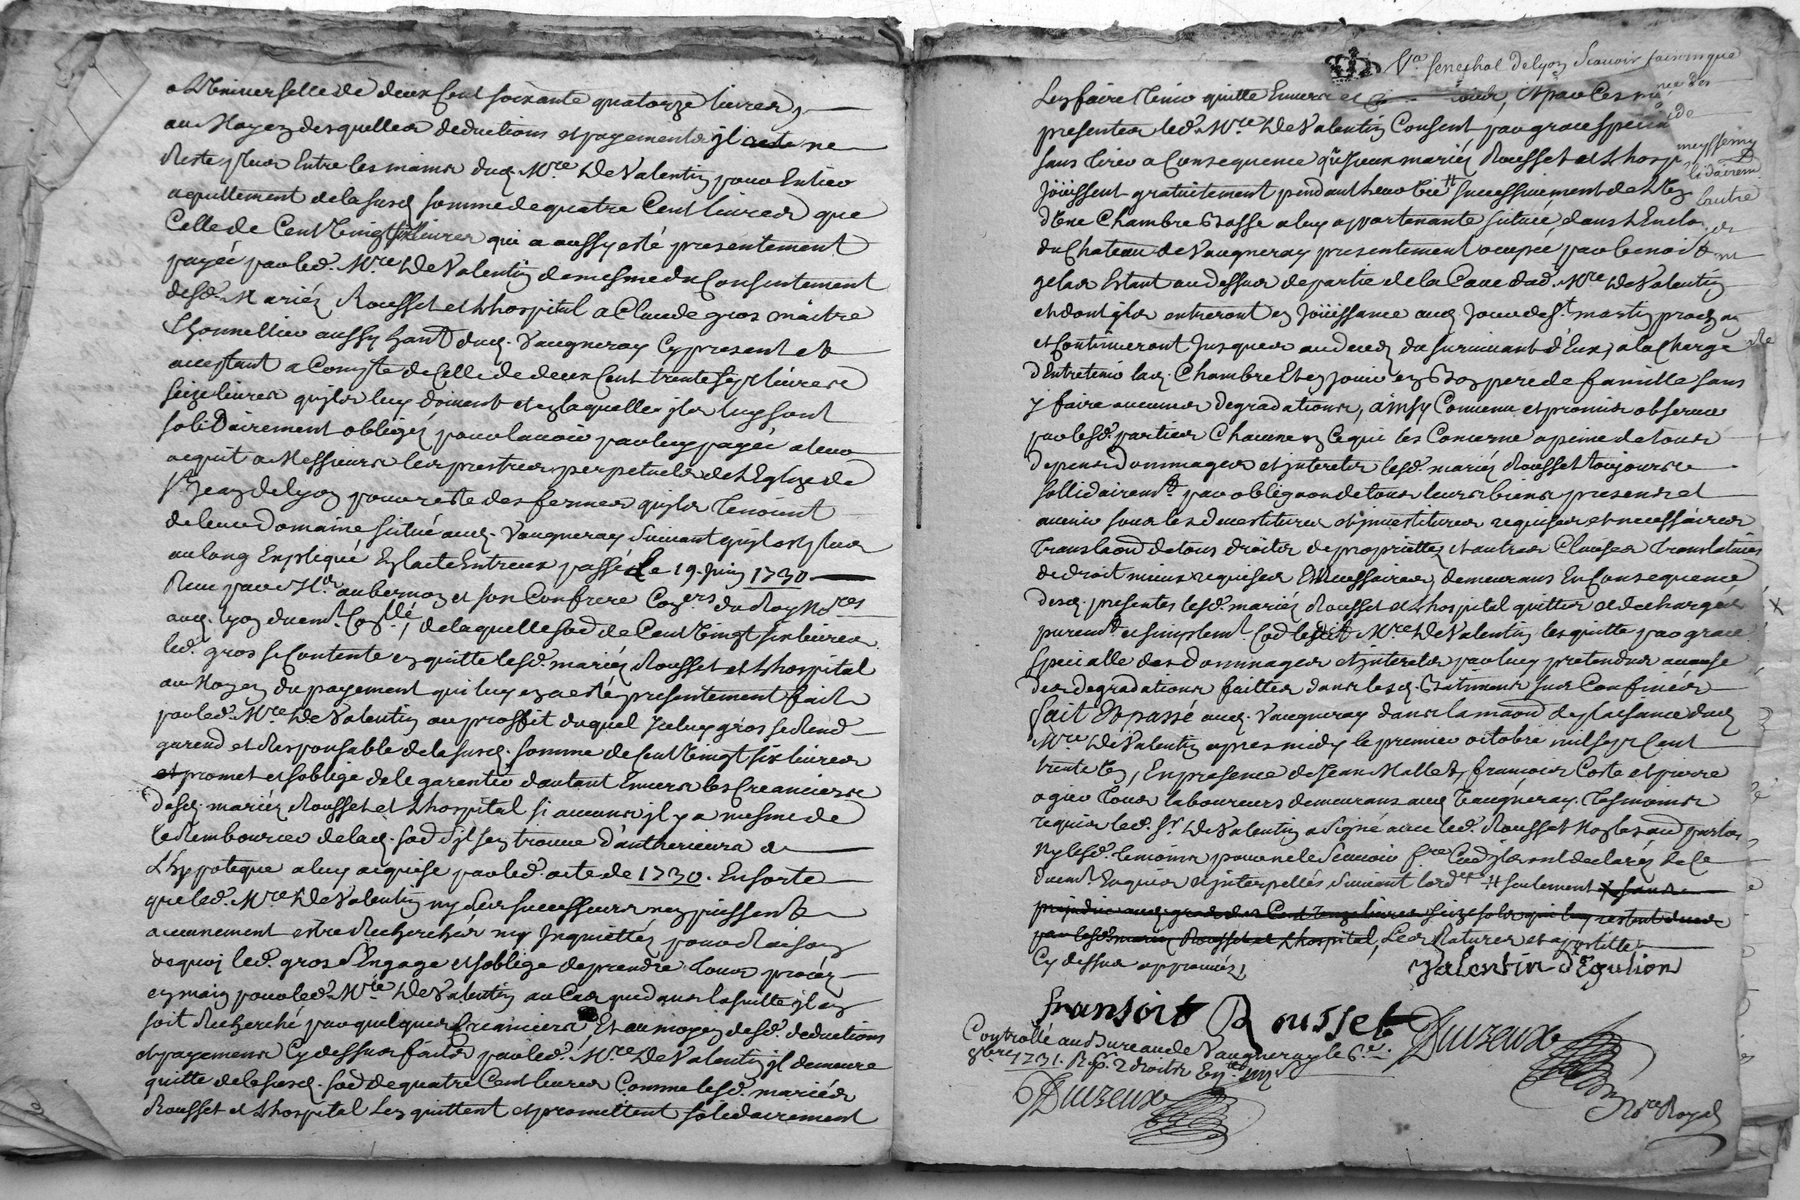 a Universelle de deux Cent soixante quatorze livres,
au Moyen desquelles deductions et payements il ne
Reste plus Entre les mains dud. Mre De Valentin pour Entier
aquittement de la susd. somme de quatre Cent livres que
Celle de Cent Vingt six livres qui a aussy esté presentement
payée par led. Mre De Valentin de mesme du Consentement
desd. Mariéz Rousset et Lhospital a Claude gros maitre
aussy hant. dud. Vaugneray Cy present et
acceptant a Compte de Celle de deux Cent trente sept livres
seize livres qu'ils luy doivent et en laquelle ils luy sont
solidairement obligez pour lavoir par luy payée a leur
acquit a Messieurs les prestres perpetuels de l'Eglize de
St. Jean de lyon pour reste des fermes qu'ils Tenoient
de leur Domaine situé aud. Vaugneray suivant qu'il est plus
au long Expliqué En l'acte Entreux passé Le 19. juin 1730
Receu par Me. aubernon et son Confrere Coners du Roy Nres
aud. lyon duemt. Collé, de laquelle sod. de Cent Vingt six livres
led. gros se Contente en quitte lesd. mariéz Rousset et Lhospital
au Moyen du payement qui luy en a esté presentement fait
par led. Mre De Valentin au proffit duquel Iceluy gros se Rend
garend et Responsable de la susd. somme de Cent Vingt six livres
et promet et soblige de le garentir d'autant Envers les Creanciers
desd. mariéz Rousset et Lhospital si aucuns il y a mesme de
le Rembourcer de lad. sod. s'il s'en trouve d'antherieurs a
L'hypoteque a luy acquise par led. acte de 1730. En sorte
que led. Mre De Valentin ny ses successeurs n'en puissent
aucunement estre Recherchéz ny Inquiettéz pour Raison
dequoy led. gros s'Engage et soblige de prendre Tous procéz
en main pour led. Mre De Valentin au Cas que dans la suitte il en
soit Recherché par quelques Creanciers, Et au moyen desd. deductions
et payements Cy dessus faits par led. Mre De Valentin il demeure
quitte de la susd. sod. de quatre Cent livres Comme lesd. mariés
Rousset et Lhospital Len quittent et promettent solidairement
senechal de lyon
Len faire Tenir quitte Envers et, Et par Ces
presentes led. Mre De Valentin Consent par grace specialle
sans Tirer a Consequence que lesd. mariéz Rousset et Lhosp
Joüissent gratuitement pendant leur vie successivement de
d'Une Chambre Basse a luy appartenante située dans L'Enclos
du Chateau de Vaugneray presentement ocupée par benoit
gelas Estant au dessus de partie de la Cave dud. Mre De Valentin
et dont ils entreront en Joüissance aud. Jour de St. martin prochain
et Continueront Jusques au deced du survivant d'Eux, a la Charge
d'Entretenir lad. Chambre Et en Jouir en Bon pere de famille sans
y faire aucunes degradations, ainsy Convenu et promis observer
par lesd. parties Chacune en Ce qui les Concerne a peine de tous
depens dommages et interets lesd. mariéz Rousset toujours
sollidairemt. par obligaon de tous leurs biens presens et
avenir sous les devestitures et investitures requises et necessaires
Translaon de tous droits de proprietez et autres Clauses Translatives
de droit mieux requises Et Necessaires, demeurans En Consequence
desd. presentes lesd. mariéz Rousset et Lhospital quittes et dechargés
purement. et simplemt. led. Mre De Valentin les quitte par grace
specialle des dommages et interets par luy pretendus a cause
des degradations faittes dans lesd. Batimens sus Confinés
fait Et passé aud. Vaugneray dans la maon de plaisance dud.
Mre De Valentin apres midy le premier octobre mil sept Cent
trente Un, En presence de Jean Mallet, françois Coste et pierre
ogier Tous laboureurs demeurans aud. Vaugneray. Tesmoins
requis led. Sr. De Valentin a signé avec led. Rousset
Ny lesd. temoins pour ne le scavoir fre ont declaréz
duemt. Enquis et interpellés suivant lordce # seulement sans
prejudice aud. gros des Cent onze livres seize sols qui luy restent deus
par lesd. mariéz Rousset et Lhospital, Les Ratures et apostille
Cy dessus approuvéz,
Valentin d'Eguilion
fransoit Rousset
Duizeux
Controllé au Bureau de Vaugneray le 6e.
8bre 1731. R. 2 droits
Duizeux
Nre Royal